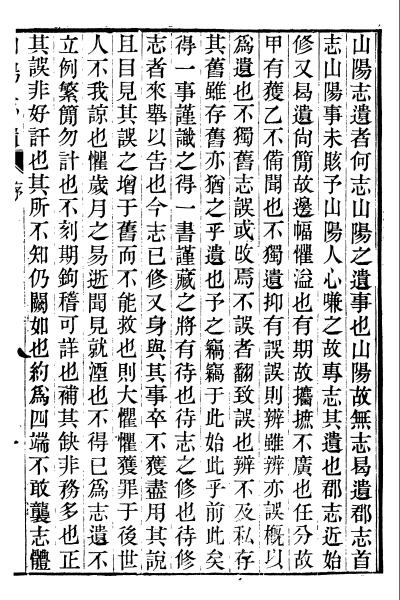 山陽志遺者何志山陽之遺事也山陽故無志曷遺郡志首
志山陽事未賅予山陽人心嗛之故專志其遺也郡志近始
修又曷遺尙簡故邊幅懼溢也有期故攟摭不廣也任分故
甲有獲乙不備聞也不獨遺抑有誤誤則辨雖辨亦誤槪以
爲遺也不獨舊志誤或攺焉不誤者翻致誤也辨不及私存
其舊雖存舊亦猶之乎遺也予之竊竊于此始此乎前此矣
得一事謹識之得一書謹藏之將有待也待志之修也待修
志者來舉以告也今志已修又身與其事卒不獲盡用其說
且目見其誤之增于舊而不能救也則大懼懼獲罪于後世
人不我諒也懼歲月之易逝聞見就湮也不得已爲志遺不
立例繁簡勿計也不刻期鉤稽可詳也補其缺非務多也正
其誤非好訐也其所不知仍闕如也約爲四端不敢襲志體
序